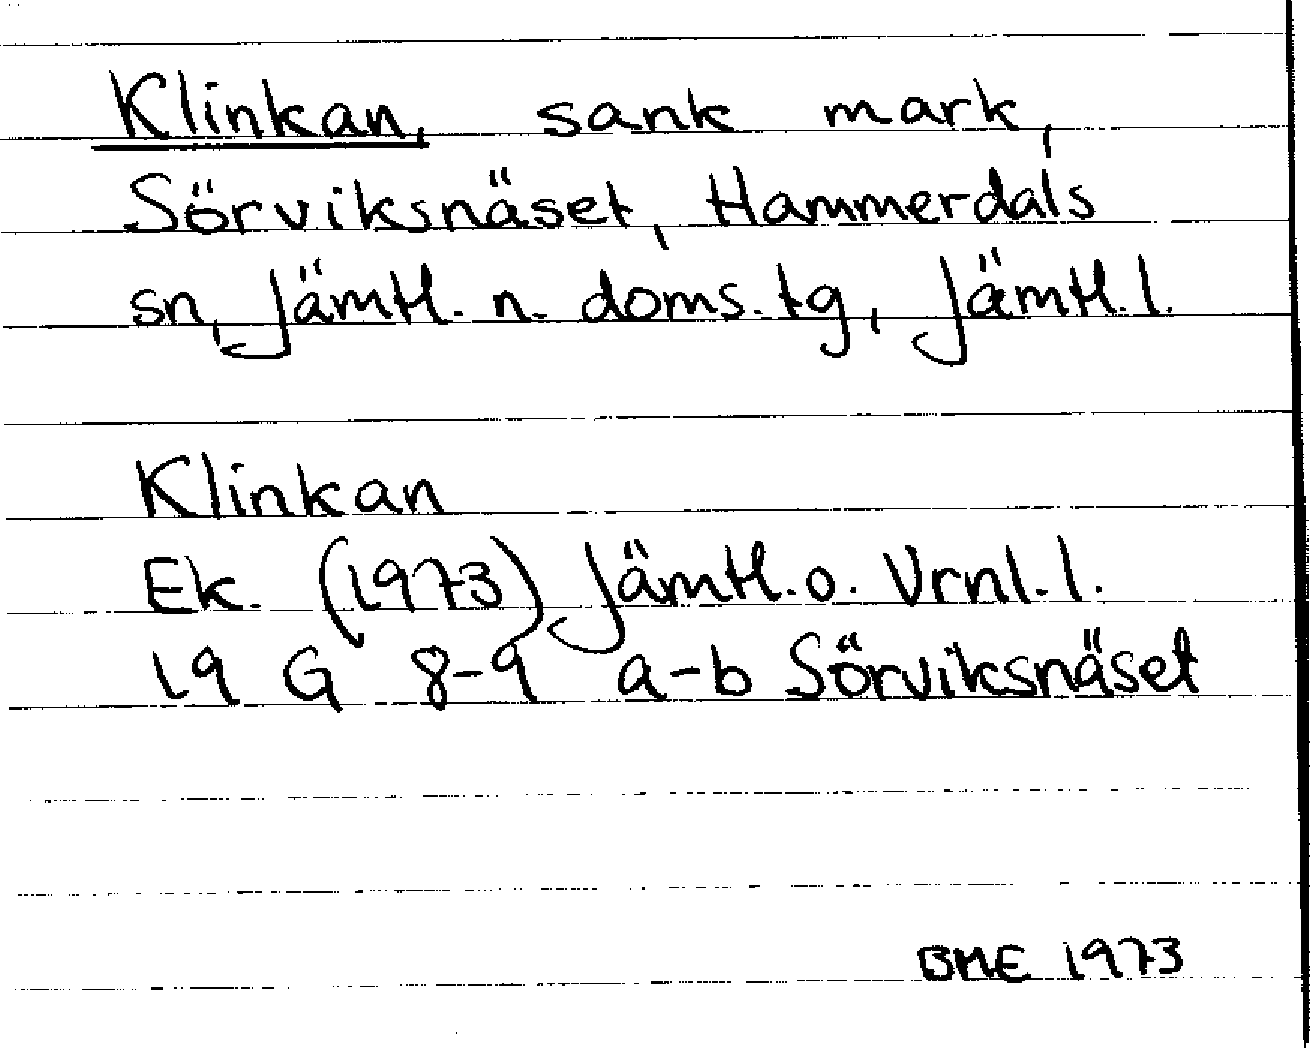 Klinkan, sank mark,
Sörviksnäset, Hammerdals
sn, Jämtl. n. doms. tg, Jämtl. l.
Klinkan
Ek. (1973) Jämtl. o. Vrnl. l.
19 G 8-9 a-b Sörviksnäset
BME 1973